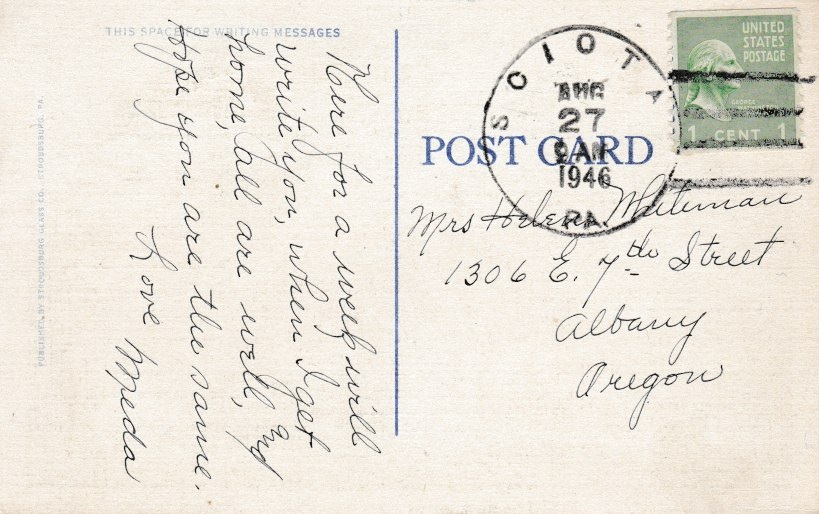 THIS SPACE FOR WRITING MESSAGES
Here for a week will
write you, when I get
home, all are well, and
hope you are the same.
Love Meda
PUBLISHED BY STROUDSBURG GLASS CO., STROUDSBURG, PA.
POST CARD
SCIOTA
AUG
27
9 AM
1946
PA.
UNITED
STATES
POSTAGE
GEORGE
1 CENT 1
Mrs Helen Whiteman
1306 E. 7th Street
Albany
Oregon